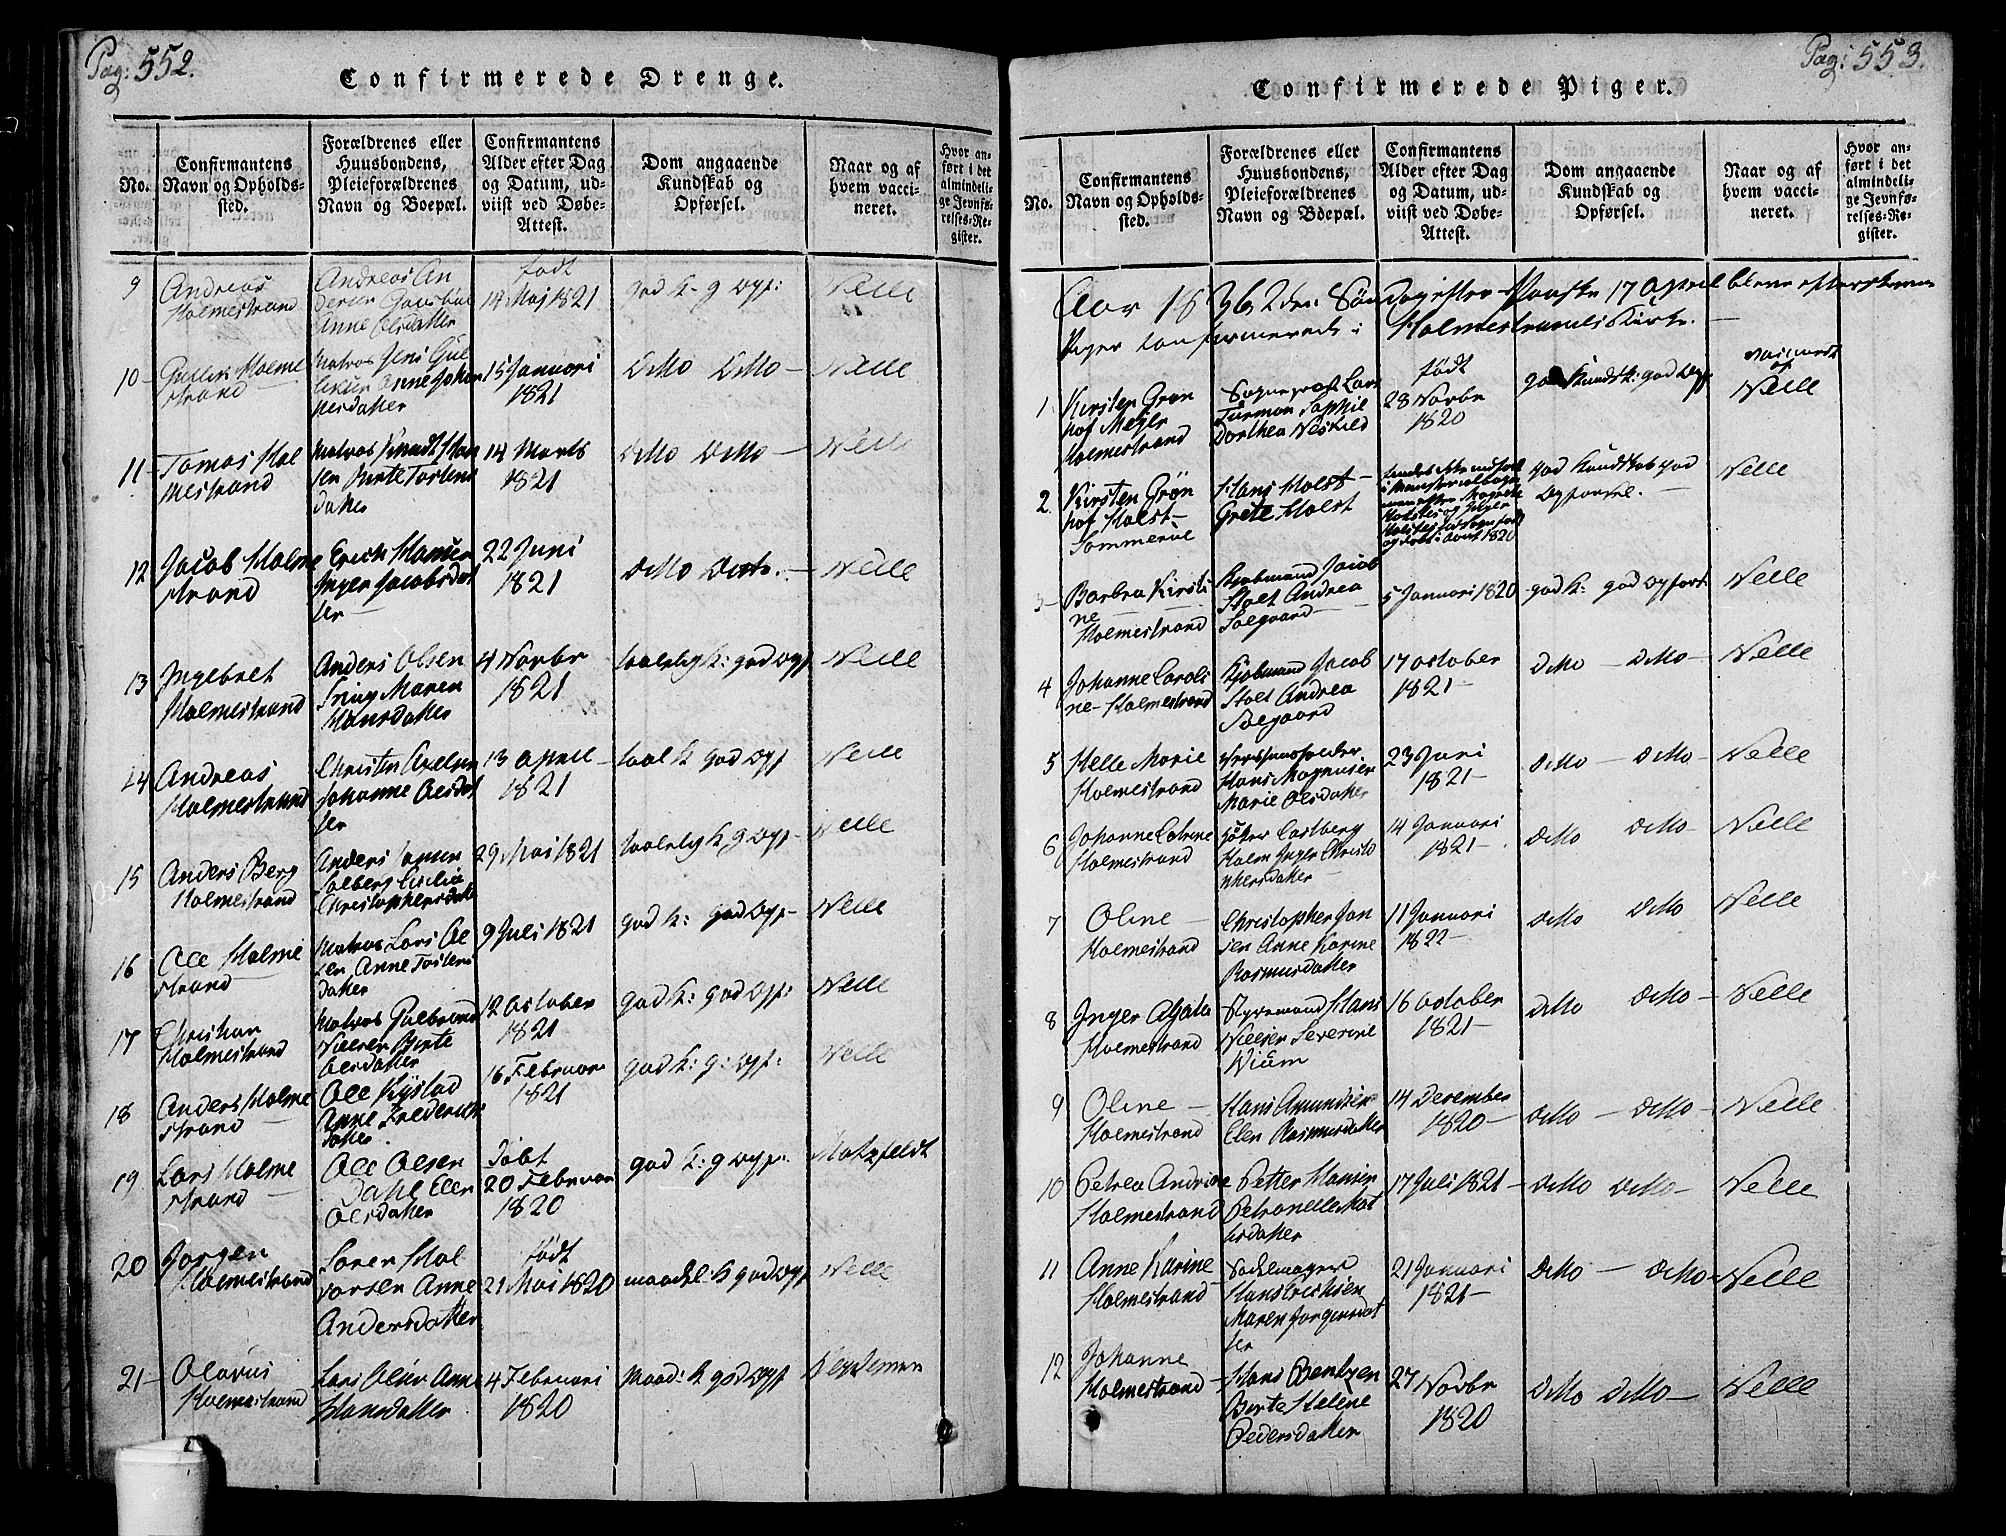 Pag: 552.
Confirmerede Drenge.
No.
Confirmantens
Navn og Opholds-
sted.
Forældrenes eller
Huusbondens,
Pleieforældrenes
Navn og Boepæl.
Confirmantens
Alder efter Dag
og Datum, ud-
viist ved Døbe-
Attest.
Dom angaaende
Kundskab og
Opførsel.
Naar og af
hvem vacci-
neret.
Hvor an-
ført i det
almindeli-
ge Jevnfø-
relses-Re-
gister.
9 Andreas
Holmestrand
Andreas An
dersen
Anne Olsdatter
født
14 Maj 1821
god K- g Opf:
Nelle
10 - Gullik Holme
strand
Matros Jens Gul
liksen Anne Johan
nesdatter
15 Januari
1821
Ditto Ditto -
Nelle
11 - Tomas Hol
mestrand
Matros Knudt Han
sen Birte Torstens
datter
14 Marts
1821
Ditto Ditto -
Nelle
12 Jacob Holme
strand
Erich Hansen
Inger Jacobsdat
ter
22 Juni
1821
Ditto Ditto. -
Nelle
13 Ingebret
Holmestrand
Anders Olsen
Maren
Hansdatter
4 Novbr
1821
taalelig K: god Opf
Nelle
14 Andreas
Holmestrand
Christen Axelsen
Johanne Olsdat
ter
13 April -
1821
taal K god Opf
Nelle
15 Anders Berg
Holmestrand
Anders
Solberg Cicilia
Christophersdatter
29 Mai 1821
taalelig K g Opf -
Nelle
16 Ole Holme
strand
Matros Lars Ol
sen Anne Tostens
datter
9 Juli 1821
god K: god Opf -
Nelle
17 Christian
Holmestrand
Matros Gulbrand
Nielsen Birte
Olsdatter
12 October
1821
god K: god Opf:
Nelle
18 Anders Holme
strand
Ole Rystad
Anne Frederichs
datter
16 Februar
1821
god K: g: Opf:
Nelle
19 Lars Holme
strand
Ole Olsen
Dahl Elen
Olsdatter
Døbt
20 Februar
1820
god K: g Opf:
Motzfeldt
20 Jørgen
Holmestrand
Søren Hal
vorsen Anne
Andersdatter
født
21 Mai 1820
maadel: K god Opf
Nelle
21 - Olavus
Holmestrand
Lars Olsen Anne
Hansdatter
4 Februari
1820
Maad: K god Opf
Pag: 553.
Confirmerede Piger.
No.
Confirmantens
Navn og Opholds-
sted.
Forældrenes eller
Huusbondens,
Pleieforældrenes
Navn og Boepæl.
Confirmantens
Alder efter Dag
og Datum, ud-
viist ved Døbe-
Attest.
Dom angaaende
Kundskab og
Opførsel.
Naar og af
hvem vacci-
neret.
Hvor an-
ført i det
almindeli-
ge Jevnfø-
relses-Re-
gister.
Aar 1836, 2den Søndag efter Paaske 17 April bleve efterskrevne
Piger confirmerede i Holmestrands Kirke. -
1. Kirsten Grøn
hof Mejer
Holmestrand
Sogneprest Lars
Sophie
Dorthea
født
28 Novbr
1820
god Kundsk: god Opf
vaccineret
af
Nelle
2. Kirsten Grøn
hof Holst -
Sommerüe
Hans Holst -
Grete Holst
god Kundskab god
Opførsel. -
Nelle
3 - Barbra Kirsti
ne -
Holmestrand
Kjøbmand Jacob
Stolt Andrea
Soegaard -
5 Januari 1820
god K: god Opførs:
Nelle
4 Johanne Caroli
ne - Holmestrand
Kjøbmand Jacob
Stolt Andrea
Soegaard
17 October
1821 -
Ditto - Ditto -
Nelle
5 Helle Marie
Holmestrand
Hans Magnusen
Marie Olsdatter
23 Juni
1821 -
Ditto - Ditto -
Nelle
6 Johanne Catrine
Holmestrand
Carlberg
Holm Inger Christo
phersdatter -
14 Januari
1821 -
Ditto Ditto -
Nelle
7 Oline -
Holmestrand
Christopher Jan
sen Anne Karine
Rasmusdatter
11 Januari
1822 -
Ditto Ditto
Nelle
8 Inger Agata
Holmestrand
Styremand Hans
Nielsen Severine
Wium
16 October
1821 -
Ditto Ditto -
Nelle
9 Oline -
Holmestrand
Hans Amundsen
Elen Rasmusdatter
14 December
1820 -
Ditto - Ditto -
Nelle
10 Petrea Andrine
Holmestrand
Petter Hansen
Petronelle Mat
hisdatter
17 Juli 1821 -
Ditto Ditto -
Nelle
11 Anne Karine
Holmestrand -
Sadelmager
Hans Erichsen
Maren Jørgensdat
ter
21 Januari
1821 -
Ditto - Ditto -
Nelle
12 Johanne
Holmestrand -
Hans Bentzen
Birte Helene
Pedersdatter
27 Novbr
1820
Ditto Ditto -
Nelle